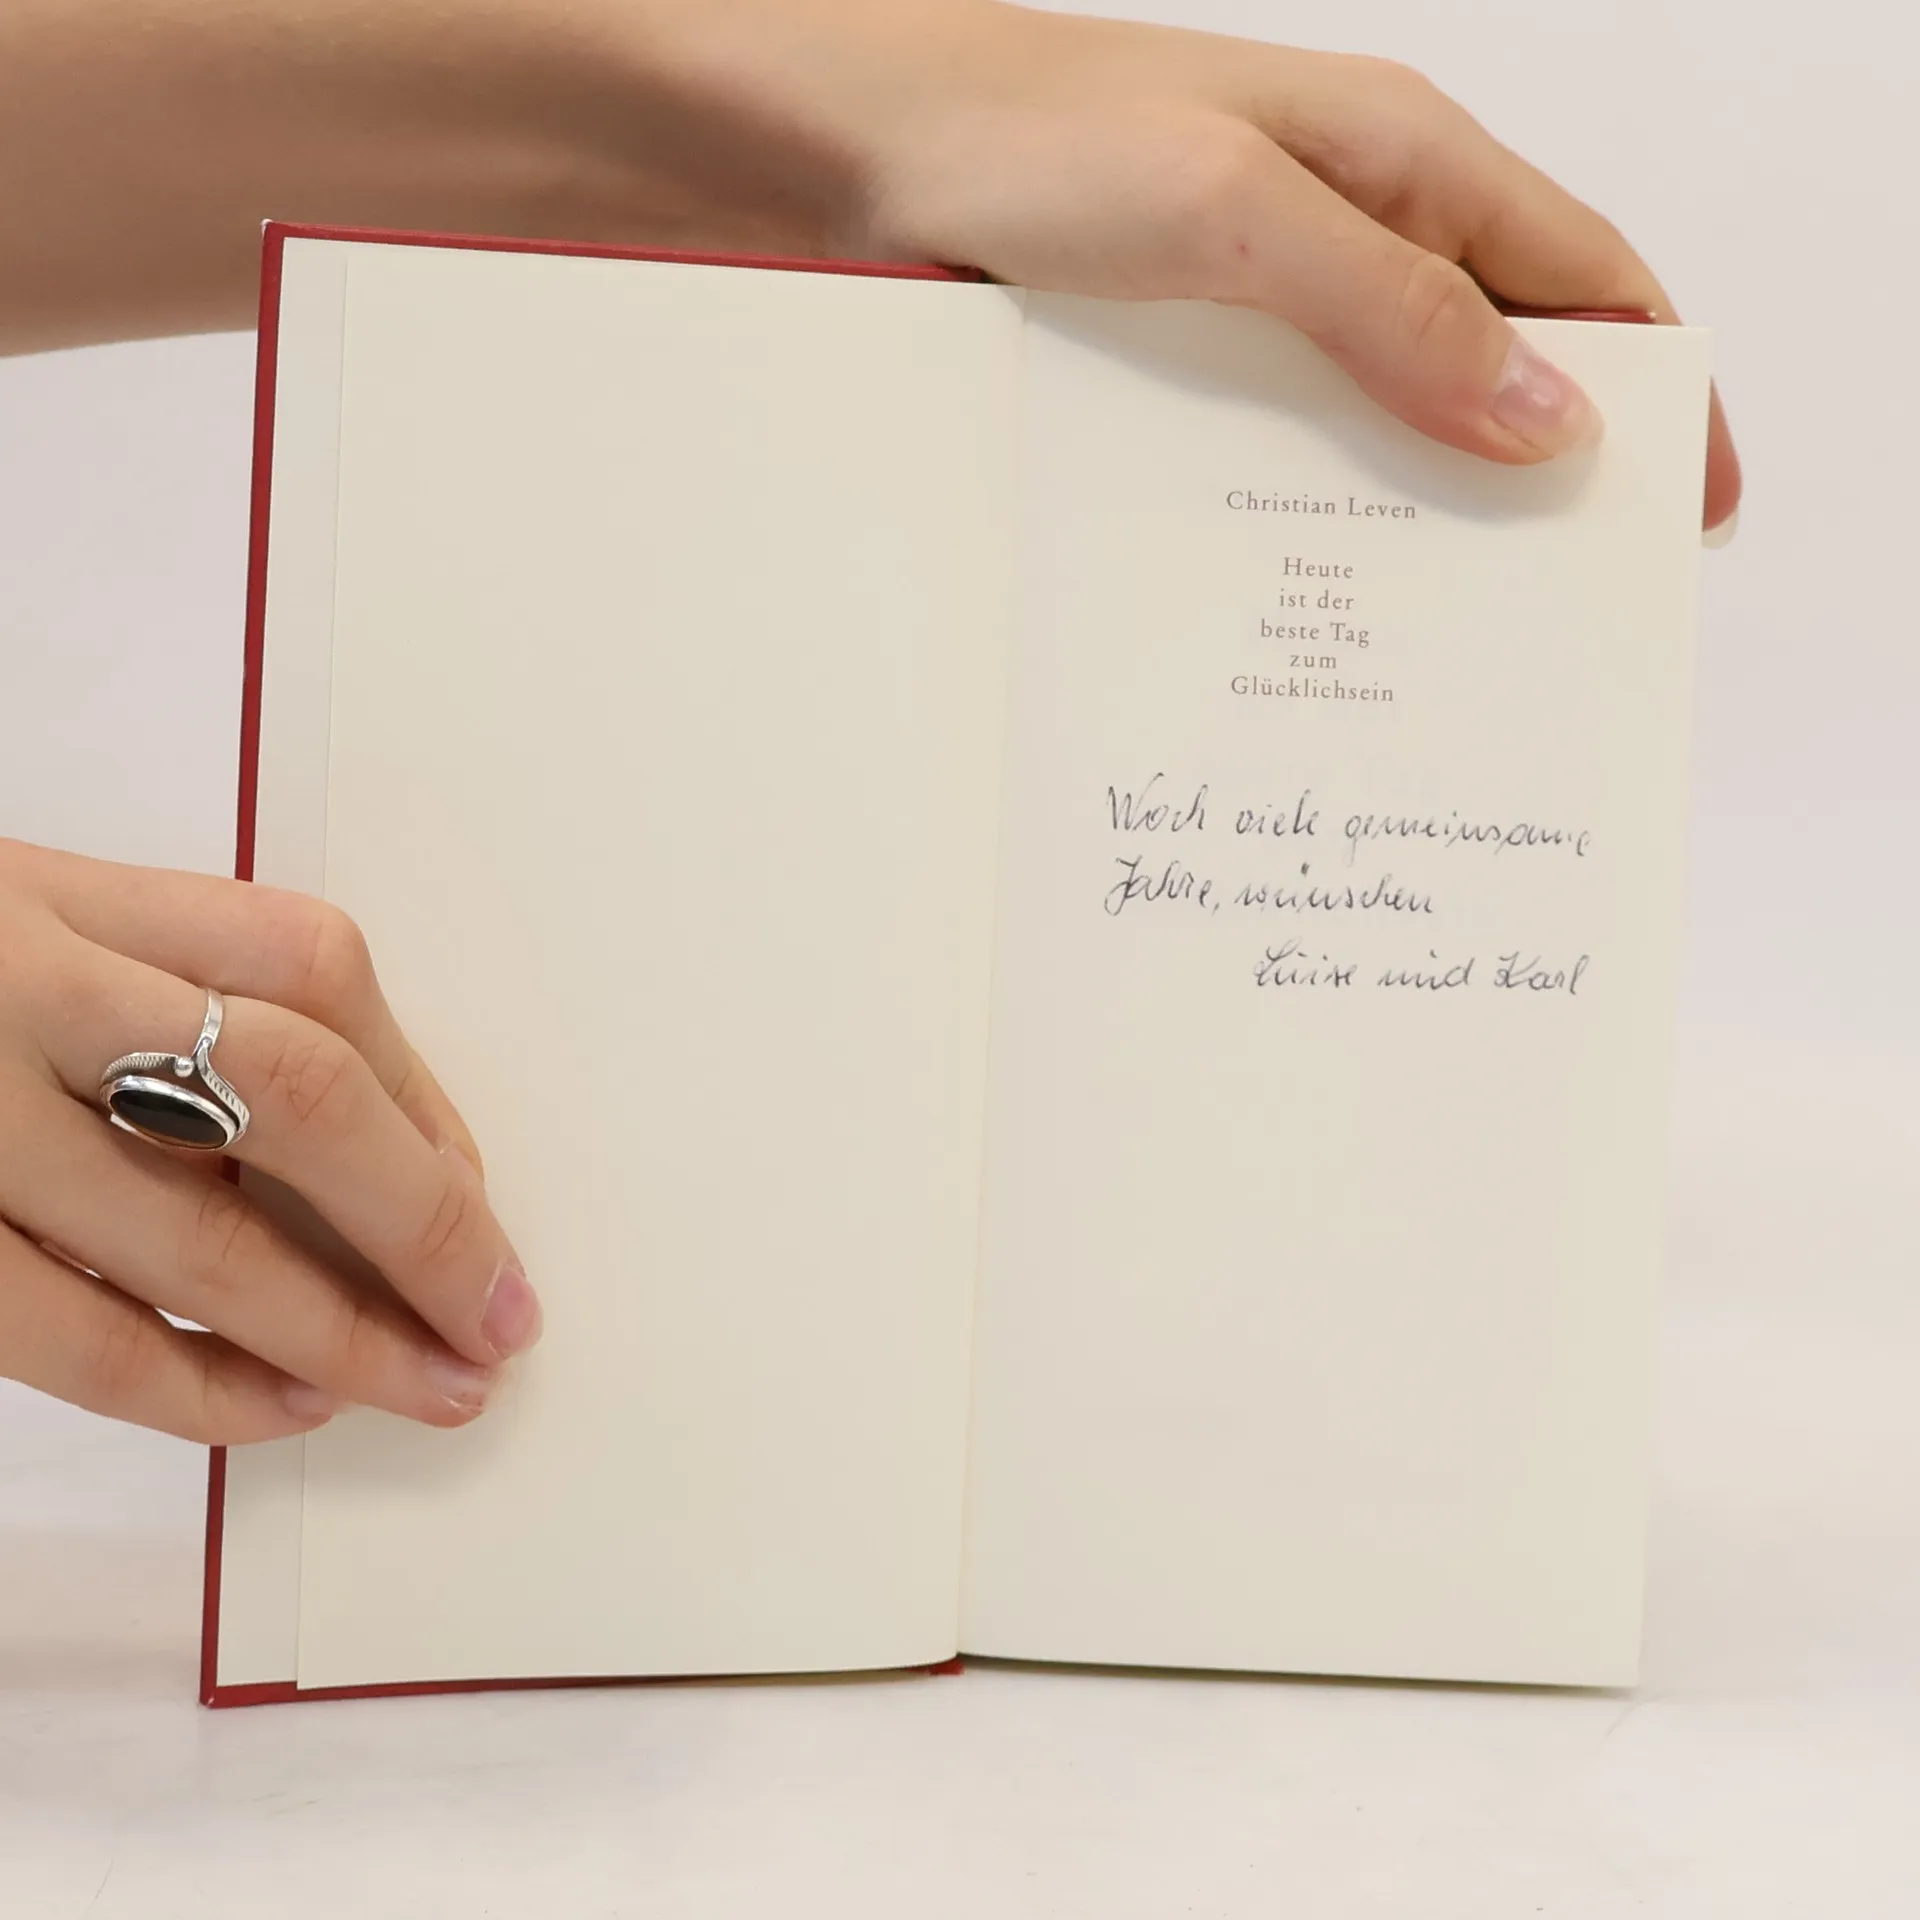 Christian Leven
Heute
ist der
beste Tag
zum
Glücklichsein
Noch viele gemeinsame
Jahre, wünschen
Luise und Karl